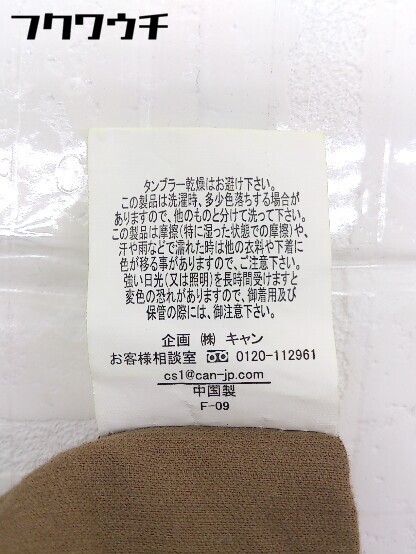 フクワウチ
タンブラー乾燥はお避け下さい。
この製品は洗濯時、多少色落ちする場合が
ありますので、他のものと分けて洗って下さい。
この製品は摩擦(特に湿った状態での摩擦)や、
汗や雨などで濡れた時は他の衣料や下着に
色が移る事がありますので、ご注意下さい。
強い日光(又は照明)を長時間受けますと
変色の恐れがありますので、御着用及び
保管の際には、御注意下さい。
企画 ㈱ キャン
お客様相談室 0120-112961
cs1@can-jp.com
中国製
F-09